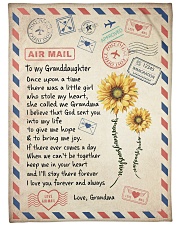 AIR MAIL
To my Granddaughter
Once upon a time
there was a little girl
who stole my heart,
she called me Grandma
I believe that God sent you
into my life
to give me hope
& to bring me joy
If there ever comes a day
When we can't be together
keep me in your heart
and I'll stay there forever
I love you forever and always
Love, Grandma